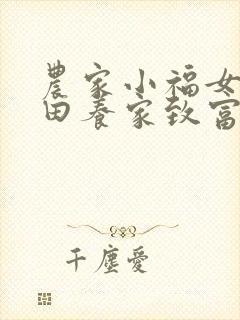 農家小福女
田養家致富
千塵愛